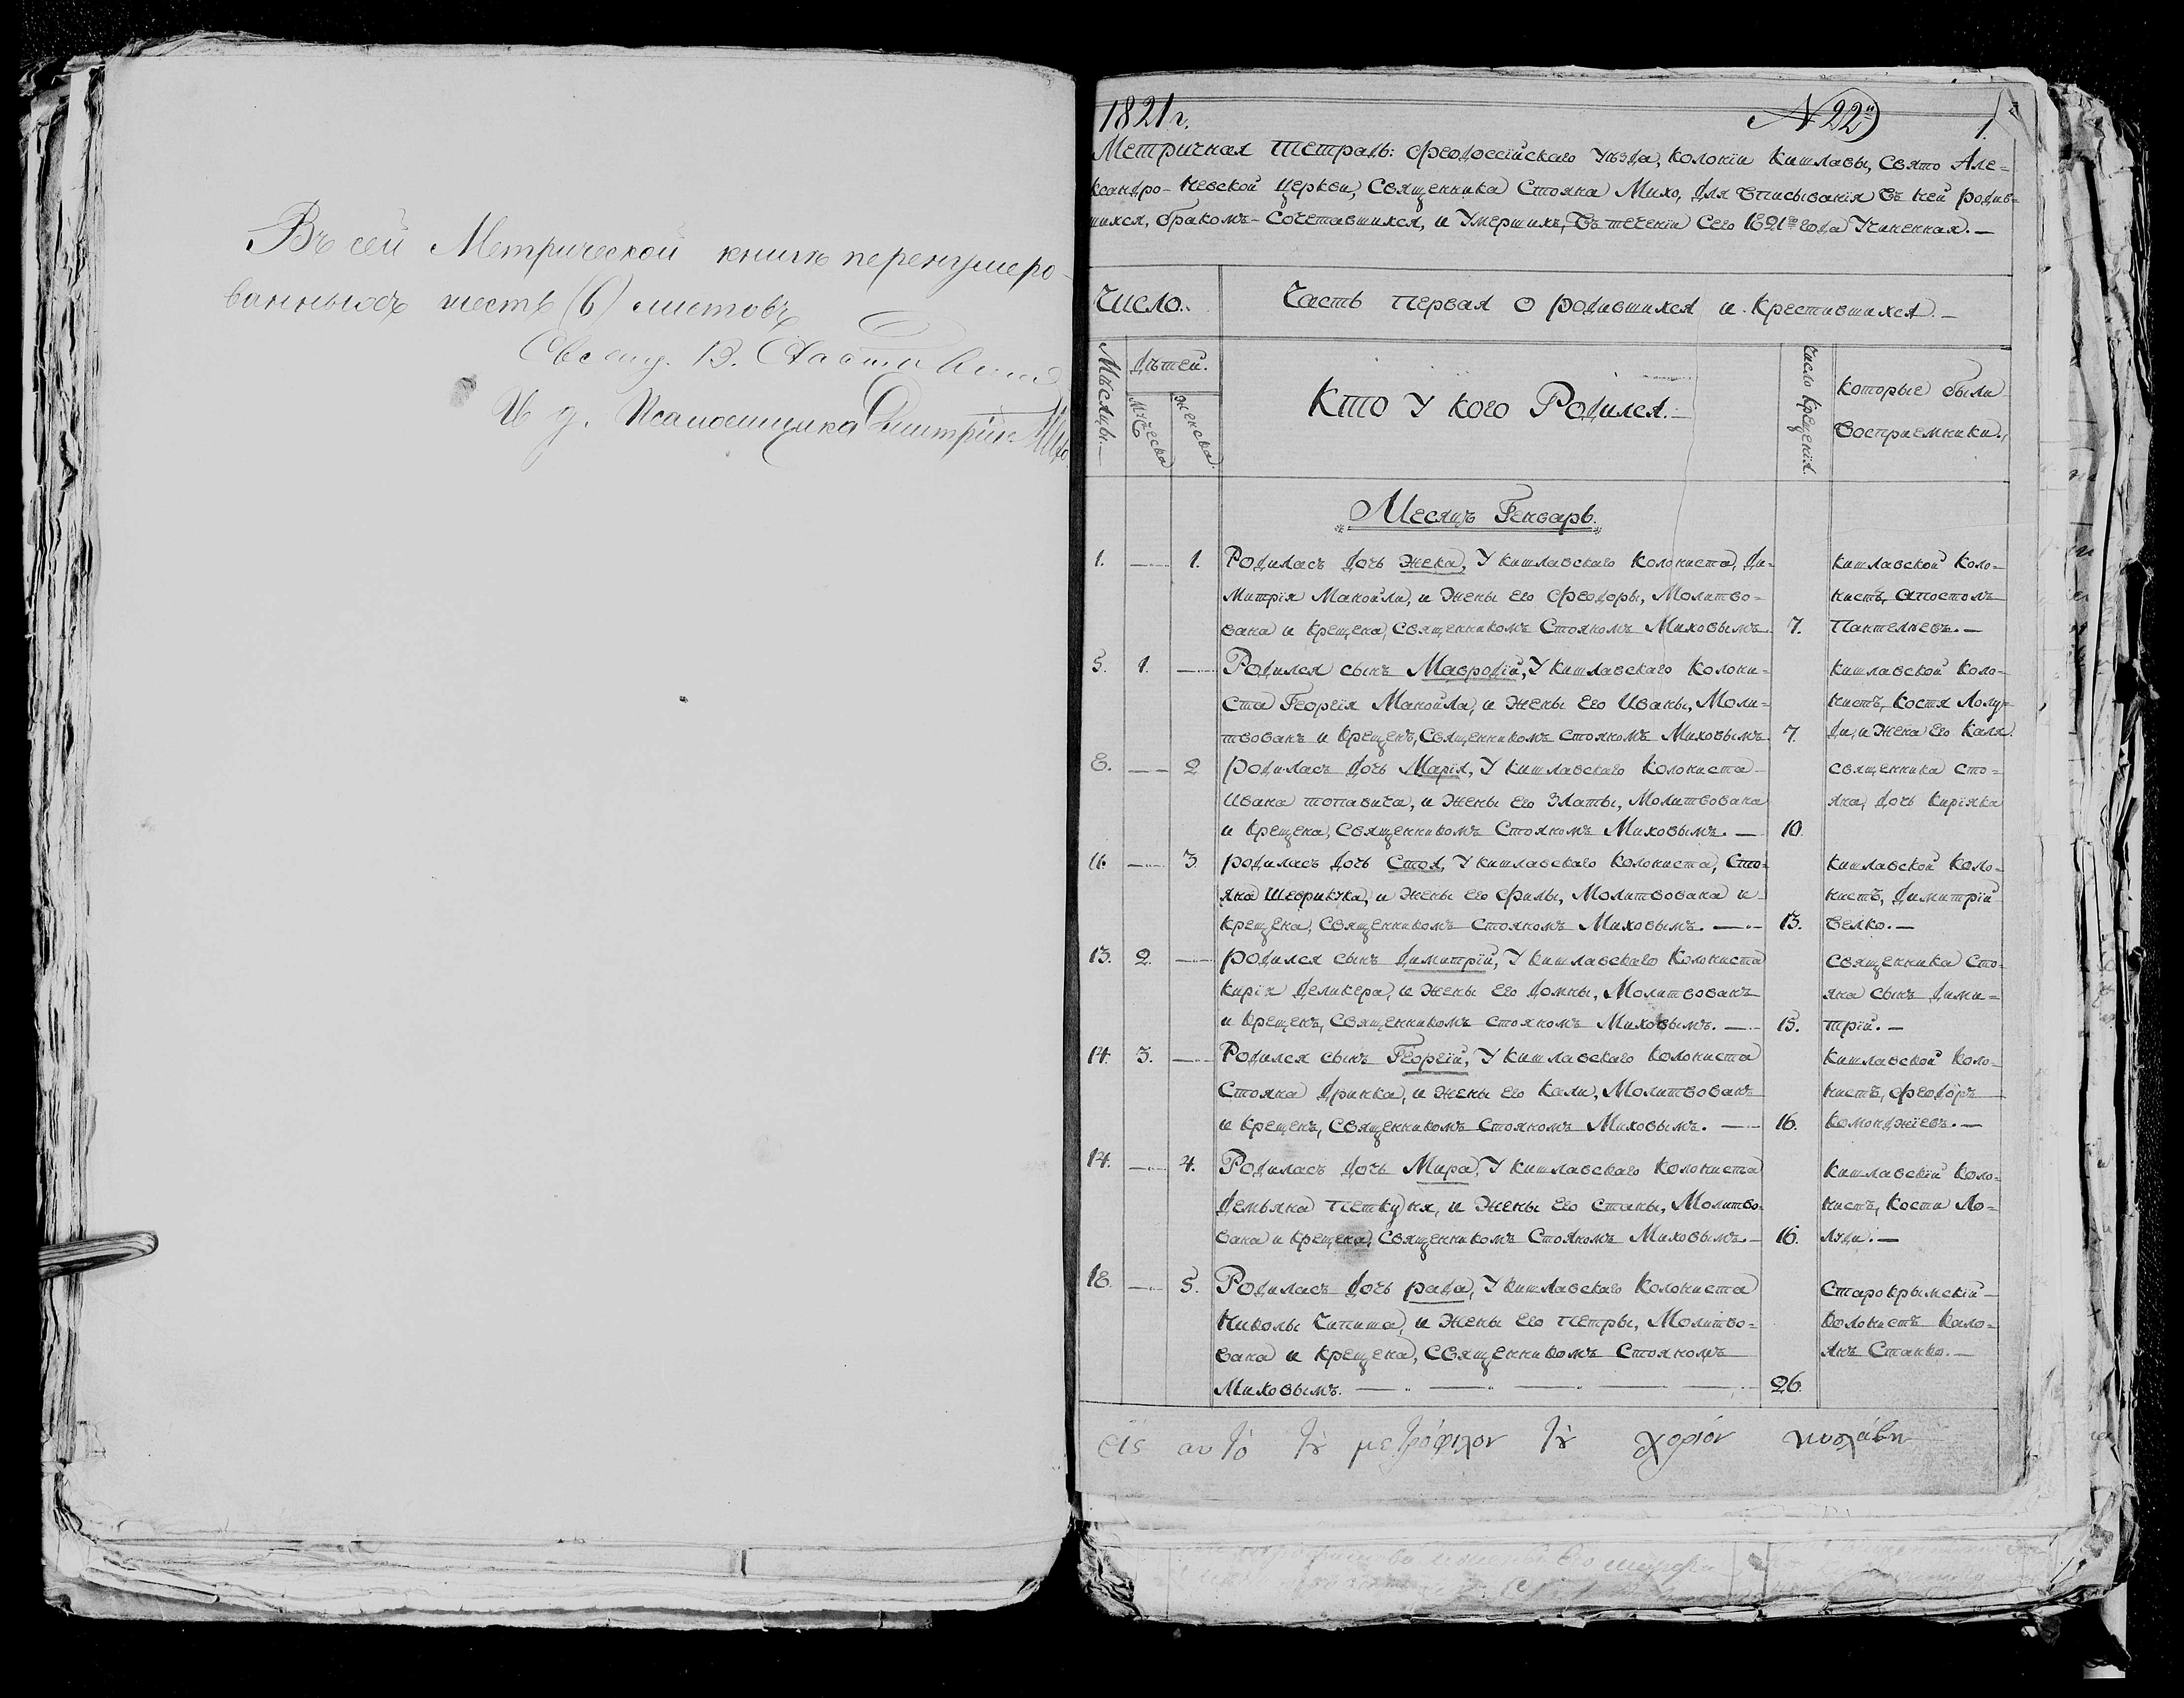 Въ сей Метрической книгѣ перенумеро-
ванныхъ шесть (6) листовъ
Свящ. В.
И. д. Псаломщика Дмитрій
1821 г.
N 22й
1.
Метричная тетрадь: Феодосїйскаго уѣзда, колонїи Кишлавы, Свято Але-
ксандро-Невской Церкви, Священника Стояна Михо, для вписыванїя въ ней родив-
шихся, бракомъ-сочетавшихся, и умершихъ, въ теченїи сего 1821го года учиненная.—
Число.
Часть первая о родившихся и крестившихся.—
Мѣсяцы.—
Дѣтей.
Мужеска
женска.
Кто у кого Родился.—
число крещенїя.
которые были
восприемники.
Месяцъ Генварь.
1. — 1. Родилась дочь Жека, у кишлавскаго колониста, Ди-
митрїя Манойли, и жены его Феодоры, Молитво-
вана и крещена, священникомъ Стояномъ Миховымъ. 7.
кишлавской коло-
нистъ, апостолъ
Пантелѣевъ.—
5. 1. — Родился сынъ Мавродїй, у кишлавскаго колони-
ста Георгїя Манойла, и жены его Иваны, Моли-
твованъ и крещенъ, священникомъ стояномъ Миховымъ. 7.
кишлавской коло-
нистъ, костя Лолу-
ди, и жена его каля.
8. — 2 родилась дочь Марїя, у кишлавскаго колониста
Ивана топавича, и жены его Златы, Молитвована
и крещена, священникомъ Стояномъ Миховымъ.— 10.
священника сто-
яна, дочь кирїяка
11. — 3. родилась дочь Стоя, у кишлавскаго колониста, Сто-
яна Шеврикука, и жены его Филы, Молитвована и
крещена, священникомъ стояномъ Миховымъ.— 13.
кишлавской коло-
нистъ, Димитрїй
велко.—
13. 2. — родился сынъ Димитрїй, у кишлавскаго колониста
кирїя Деликера, и жены его Домны, Молитвованъ
и крещенъ, священникомъ стояномъ Миховымъ.— 15.
священника сто-
яна сынъ Дими-
трїй.—
14. 3. — Родился сынъ Георгїй, у кишлавскаго колониста
Стояна Дринка, и жены его кали, Молитвованъ
и крещенъ, священникомъ Стояномъ Миховымъ.— 16.
кишлавской коло-
нистъ, феодоръ
комонджїевъ.—
14. — 4. Родилась дочь Мира, у кишлавскаго колониста
Демьяна петкуня, и жены его станы, Молитво-
вана и крещена, священникомъ Стояномъ Миховымъ.— 16.
кишлавскїй коло-
нистъ, кости Ло-
луди.—
18. — 5. Родилась дочь рада, у кишлавскаго колониста
Николы Чипиша, и жены его петры, Молитво-
вана и крещена, священникомъ Стояномъ
Миховымъ.— 26.
Старокрымскїй
колонистъ кало-
янъ Станко.—
εἰς αυτὸ τὸ μετρόφιλον τὸ χορίον κισλάβη